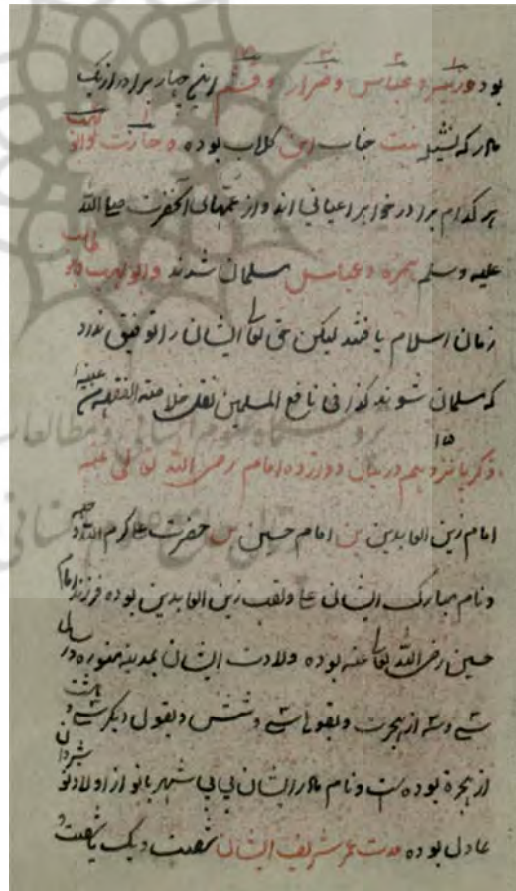 بود و زبیر و عباس و ضرار و قثم این چهار برادر از یک
مادر که نتیله بنت خباب ابن کلاب بوده و حارث
هر کدام برادر خواهر اعیانی اند و از عمهای آنحضرت صلی الله
علیه وسلم حمزه و عباس مسلمان شدند و ابو لهب و ابو طالب
زمان اسلام یافتند لیکن حق تعالی ایشان را توفیق نداد
که مسلمان شوند کذا فی نافع المسلمین نقل خلاصة الفقه
ذکر پانزدهم ۱۵ در بیان دوازده امام رضی الله تعالی عنه
امام زین العابدین بن امام حسین بن حضرت علی کرم الله وجهه
و نام مبارک ایشان علی و لقب زین العابدین بوده فرزند امام
حسین رضی الله تعالی عنه بوده ولادت ایشان بمدینه منوره در سال
سی و سه از هجرت و بقول سی و شش و بقول دیگر سی و هشت
از هجرة بوده است و نام مادر ایشان بی بی شهر بانو از اولاد
عادل بوده مدت عمر شریف ایشان شصت و یک یا شصت و